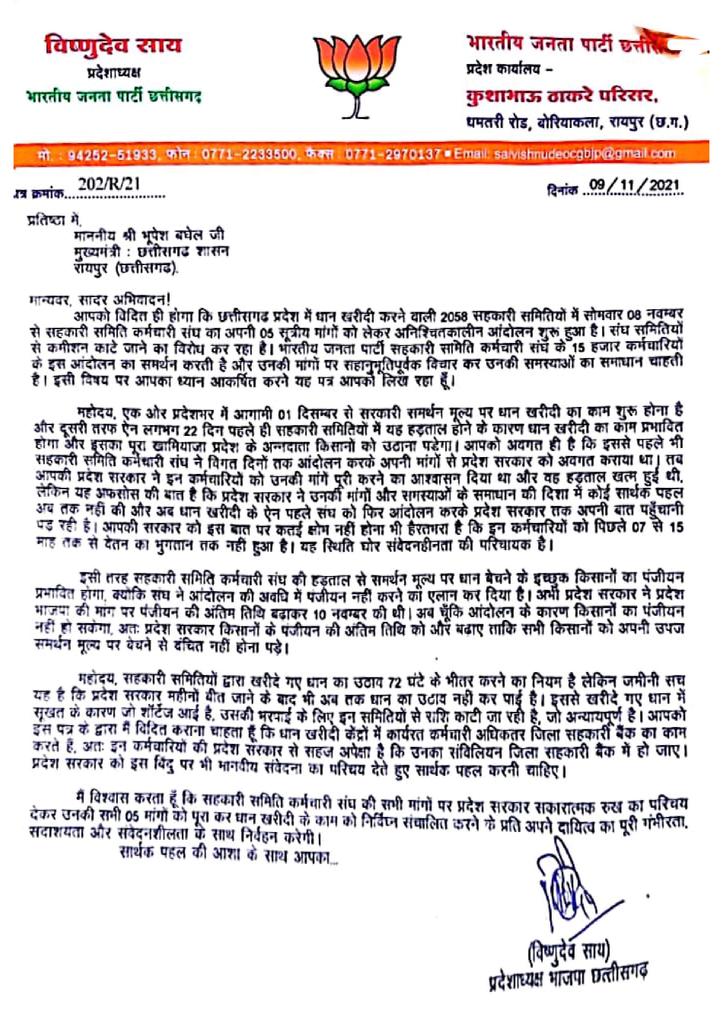 विष्णुदेव साय
प्रदेशाध्यक्ष
भारतीय जनता पार्टी छत्तीसगढ़
भारतीय जनता पार्टी
प्रदेश कार्यालय –
कुशाभाऊ ठाकरे परिसर,
धमतरी रोड, बोरियाकला, रायपुर (छ.ग.)
मो. : 94252-51933, फोन : 0771-2233500, फैक्स : 0771-2970137 ■ Email: saivishnudeocgbjp@gmail.com
पत्र क्रमांक 202/R/21
दिनांक 09/11/2021
प्रतिष्ठा में,
माननीय श्री भूपेश बघेल जी
मुख्यमंत्री : छत्तीसगढ शासन
रायपुर (छत्तीसगढ).
मान्यवर, सादर अभिवादन!
आपको विदित ही होगा कि छत्तीसगढ प्रदेश में धान खरीदी करने वाली 2058 सहकारी समितियों में सोमवार 08 नवम्बर
से सहकारी समिति कर्मचारी संघ का अपनी 05 सूत्रीय मांगों को लेकर अनिश्चितकालीन आंदोलन शुरू हुआ है। संघ समितियों
से कमीशन काटे जाने का विरोध कर रहा है। भारतीय जनता पार्टी सहकारी समिति कर्मचारी संघ के 15 हजार कर्मचारियों
के इस आंदोलन का समर्थन करती है और उनकी मांगों पर सहानुभूतिपूर्वक विचार कर उनकी समस्याओं का समाधान चाहती
है। इसी विषय पर आपका ध्यान आकर्षित करने यह पत्र आपको लिख रहा हूँ।
महोदय, एक ओर प्रदेशभर में आगामी 01 दिसम्बर से सरकारी समर्थन मूल्य पर धान खरीदी का काम शुरू होना है
और दूसरी तरफ ऐन लगभग 22 दिन पहले ही सहकारी समितियों में यह हड़ताल होने के कारण धान खरीदी का काम प्रभावित
होगा और इसका पूरा खामियाजा प्रदेश के अन्नदाता किसानों को उठाना पड़ेगा। आपको अवगत ही है कि इससे पहले भी
सहकारी समिति कर्मचारी संघ ने विगत दिनों तक आंदोलन करके अपनी मांगों से प्रदेश सरकार को अवगत कराया था। तब
आपकी प्रदेश सरकार ने इन कर्मचारियों को उनकी मांगें पूरी करने का आश्वासन दिया था और वह हड़ताल खत्म हुई थी,
लेकिन यह अफसोस की बात है कि प्रदेश सरकार ने उनकी मांगों और समस्याओं के समाधान की दिशा में कोई सार्थक पहल
अब तक नहीं की और अब धान खरीदी के ऐन पहले संघ को फिर आंदोलन करके प्रदेश सरकार तक अपनी बात पहुँचानी
पड़ रही है। आपकी सरकार को इस बात पर कतई क्षोम नहीं होना भी हैरतभरा है कि इन कर्मचारियों को पिछले 07 से 15
माह तक से वेतन का भुगतान तक नही हुआ है। यह स्थिति घोर संवेदनहीनता की परिचायक है।
इसी तरह सहकारी समिति कर्मचारी संघ की हड़ताल से समर्थन मूल्य पर धान बेचने के इच्छुक किसानों का पंजीयन
प्रभावित होगा, क्योंकि संघ ने आंदोलन की अवधि में पंजीयन नहीं करने का एलान कर दिया है। अभी प्रदेश सरकार ने प्रदेश
भाजपा की मांग पर पंजीयन की अंतिम तिथि बढाकर 10 नवम्बर की थी। अब चूँकि आंदोलन के कारण किसानों का पंजीयन
नहीं हो सकेगा, अतः प्रदेश सरकार किसानों के पंजीयन की अंतिम तिथि को और बढाए ताकि सभी किसानों को अपनी उपज
समर्थन मूल्य पर बेचने से वंचित नहीं होना पड़े।
महोदय, सहकारी समितियों द्वारा खरीदे गए धान का उठाव 72 घंटे के भीतर करने का नियम है लेकिन जमीनी सच
यह है कि प्रदेश सरकार महीनों बीत जाने के बाद भी अब तक धान का उठाव नहीं कर पाई है। इससे खरीदे गए धान में
सूखत के कारण जो शॉर्टेज आई है, उसकी भरपाई के लिए इन समितियों से राशि काटी जा रही है, जो अन्यायपूर्ण है। आपको
इस पत्र के द्वारा मैं विदित कराना चाहता हूँ कि धान खरीदी केंद्रों में कार्यरत कर्मचारी अधिकतर जिला सहकारी बैंक का काम
करते हैं, अतः इन कर्मचारियों की प्रदेश सरकार से सहज अपेक्षा है कि उनका संविलियन जिला सहकारी बैंक में हो जाए।
प्रदेश सरकार को इस बिंदु पर भी मानवीय संवेदना का परिचय देते हुए सार्थक पहल करनी चाहिए।
मैं विश्वास करता हूँ कि सहकारी समिति कर्मचारी संघ की सभी मांगों पर प्रदेश सरकार सकारात्मक रुख का परिचय
देकर उनकी सभी 05 मांगों को पूरा कर धान खरीदी के काम को निर्विघ्न संचालित करने के प्रति अपने दायित्व का पूरी गंभीरता,
सदाशयता और संवेदनशीलता के साथ निर्वहन करेगी।
सार्थक पहल की आशा के साथ आपका...
(विष्णुदेव साय)
प्रदेशाध्यक्ष भाजपा छत्तीसगढ़